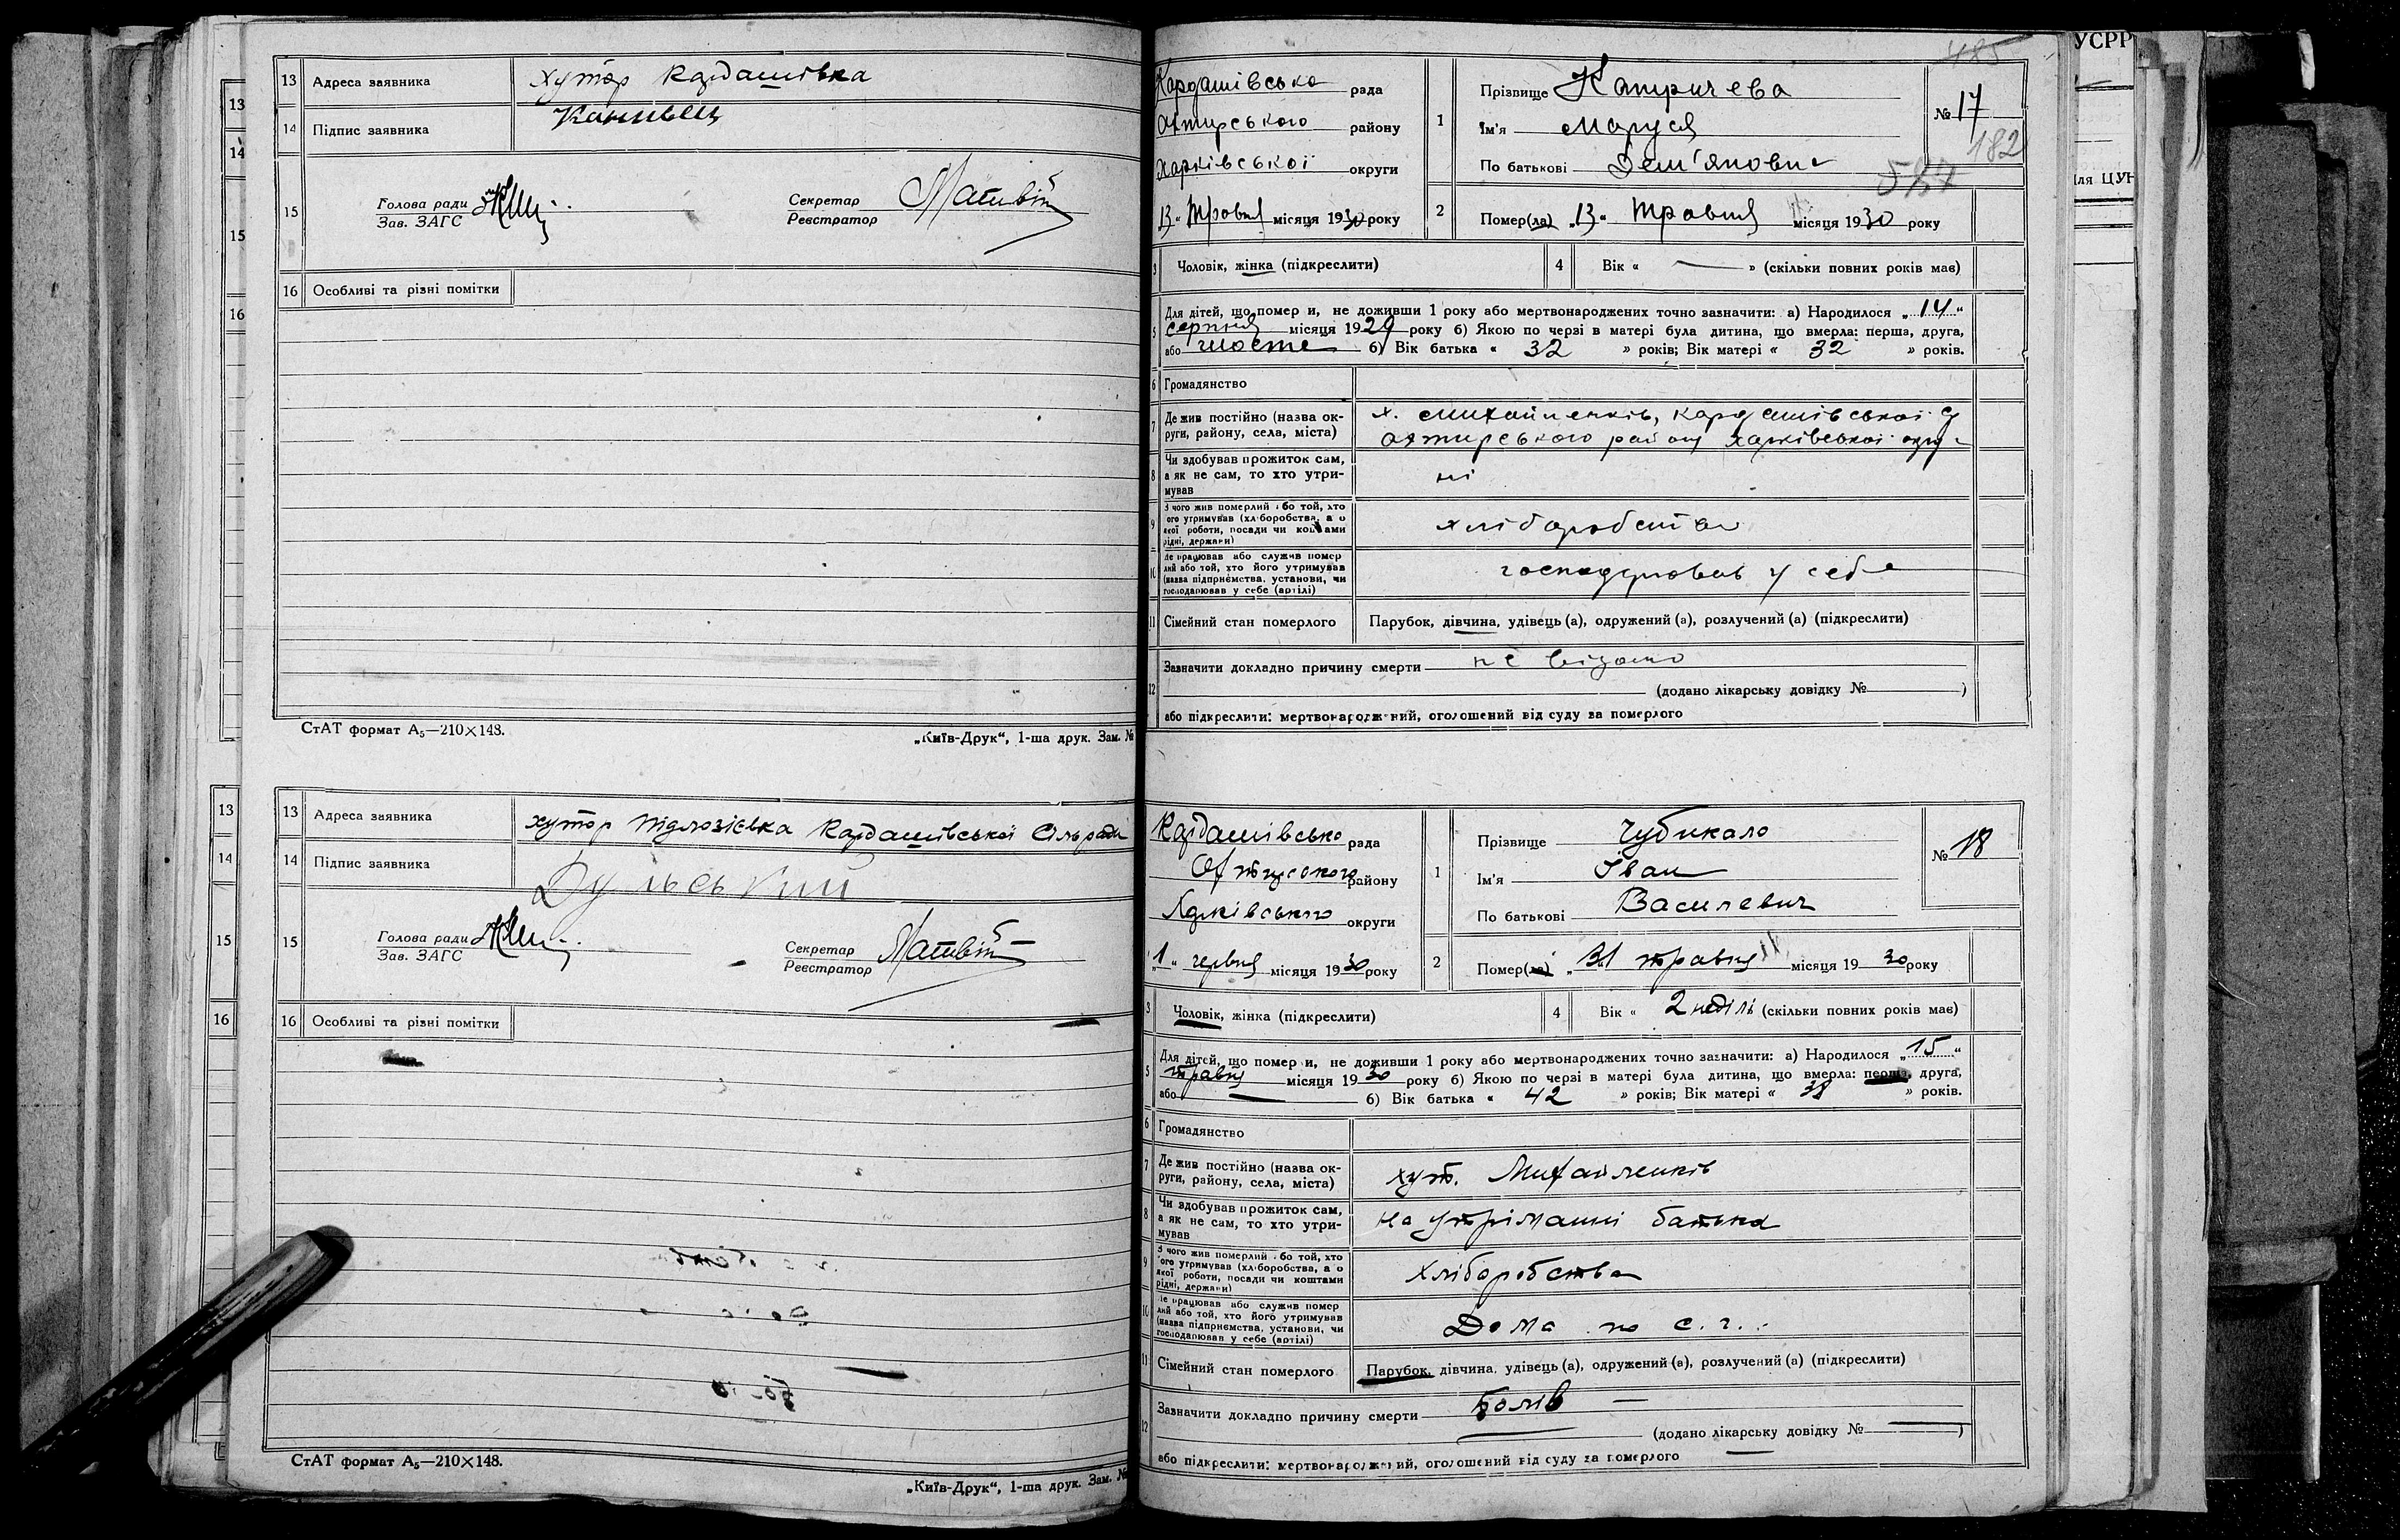 13 Адреса заявника хутор Кардашівка
14 Підпис заявника
15 Голова ради
Зав. ЗАГС
Секретар
Реєстратор
16 Особливі та різні помітки
СтАТ формат А₅—210×148.
„Київ-Друк“, 1-ша друк. Зам. №
13 Адреса заявника хутор Підлозіевка Кардашівської Сільради
14 Підпис заявника Дульський
15 Голова ради
Зав. ЗАГС
Секретар
Реєстратор
16 Особливі та різні помітки
СтАТ формат А₅—210×148.
„Київ-Друк“, 1-ша друк. Зам. №
13
14
15
16
13
14
15
16
485
Кардашівсько рада
Охтирського району
Харківської округи
13 „ Травня місяця 1930 року
1 Прізвище Капричева
Ім'я Маруся
По батькові Дем'яновна
№ 17
182
2 Помер(ла) „13“ Травня місяця 1930 року
3 Чоловік, жінка (підкреслити)
4 Вік « — » (скільки повних років має)
5 Для дітей, що помер и, не доживши 1 року або мертвонароджених точно зазначити: а) Народилося „14“
серпня місяця 1929 року б) Якою по черзі в матері була дитина, що вмерла: перша, друга,
або шосте б) Вік батька « 32 » років; Вік матері « 32 » років.
6 Громадянство
7 Де жив постійно (назва ок-
руги, району, села, міста)
х. Михайленків, Кардашівської
Охтирського району Харківської
8 Чи здобував прожиток сам,
а як не сам, то хто утри-
мував
ні
9 З чого жив померлий або той, хто
його утримував (хліборобства, а о
якої роботи, посади чи коштами
рідні, держави)
хліборобства
10 Де працював або служив помер
лий або той, хто його утримував
(назва підприємства, установи, чи
господарював у себе (артілі)
господарював у себе
11 Сімейний стан померлого Парубок, дівчина, удівець (а), одружений (а), розлучений (а) (підкреслити)
12 Зазначити докладно причину смерти не відомо
(додано лікарську довідку № )
або підкреслити: мертвонароджений, оголошений від суду за померлого
Кардашівсько рада
Охтирського району
Харківського округи
„1“ червня місяця 1930 року
1 Прізвище Чубикало
Ім'я Іван
По батькові Василевич
№ 18
2 Помер(ла) „31 травня місяця 1930 року
3 Чоловік, жінка (підкреслити)
4 Вік « 2 неділі (скільки повних років має)
5 Для дітей, що помер и, не доживши 1 року або мертвонароджених точно зазначити: а) Народилося „15“
травня місяця 1930 року б) Якою по черзі в матері була дитина, що вмерла: перша, друга,
або — б) Вік батька « 42 » років; Вік матері « 38 » років.
6 Громадянство
7 Де жив постійно (назва ок-
руги, району, села, міста)
хут. Михайленків
8 Чи здобував прожиток сам,
а як не сам, то хто утри-
мував
на утріманні батька
9 З чого жив померлий або той, хто
його утримував (хліборобства, а о
якої роботи, посади чи коштами
рідні, держави)
Хліборобства
10 Де працював або служив помер
лий або той, хто його утримував
(назва підприємства, установи, чи
господарював у себе (артілі)
Дома по с. г.
11 Сімейний стан померлого Парубок, дівчина, удівець (а), одружений (а), розлучений (а) (підкреслити)
12 Зазначити докладно причину смерти
(додано лікарську довідку № — )
або підкреслити: мертвонароджений, оголошений від суду за померлого
УСРР
для ЦУН